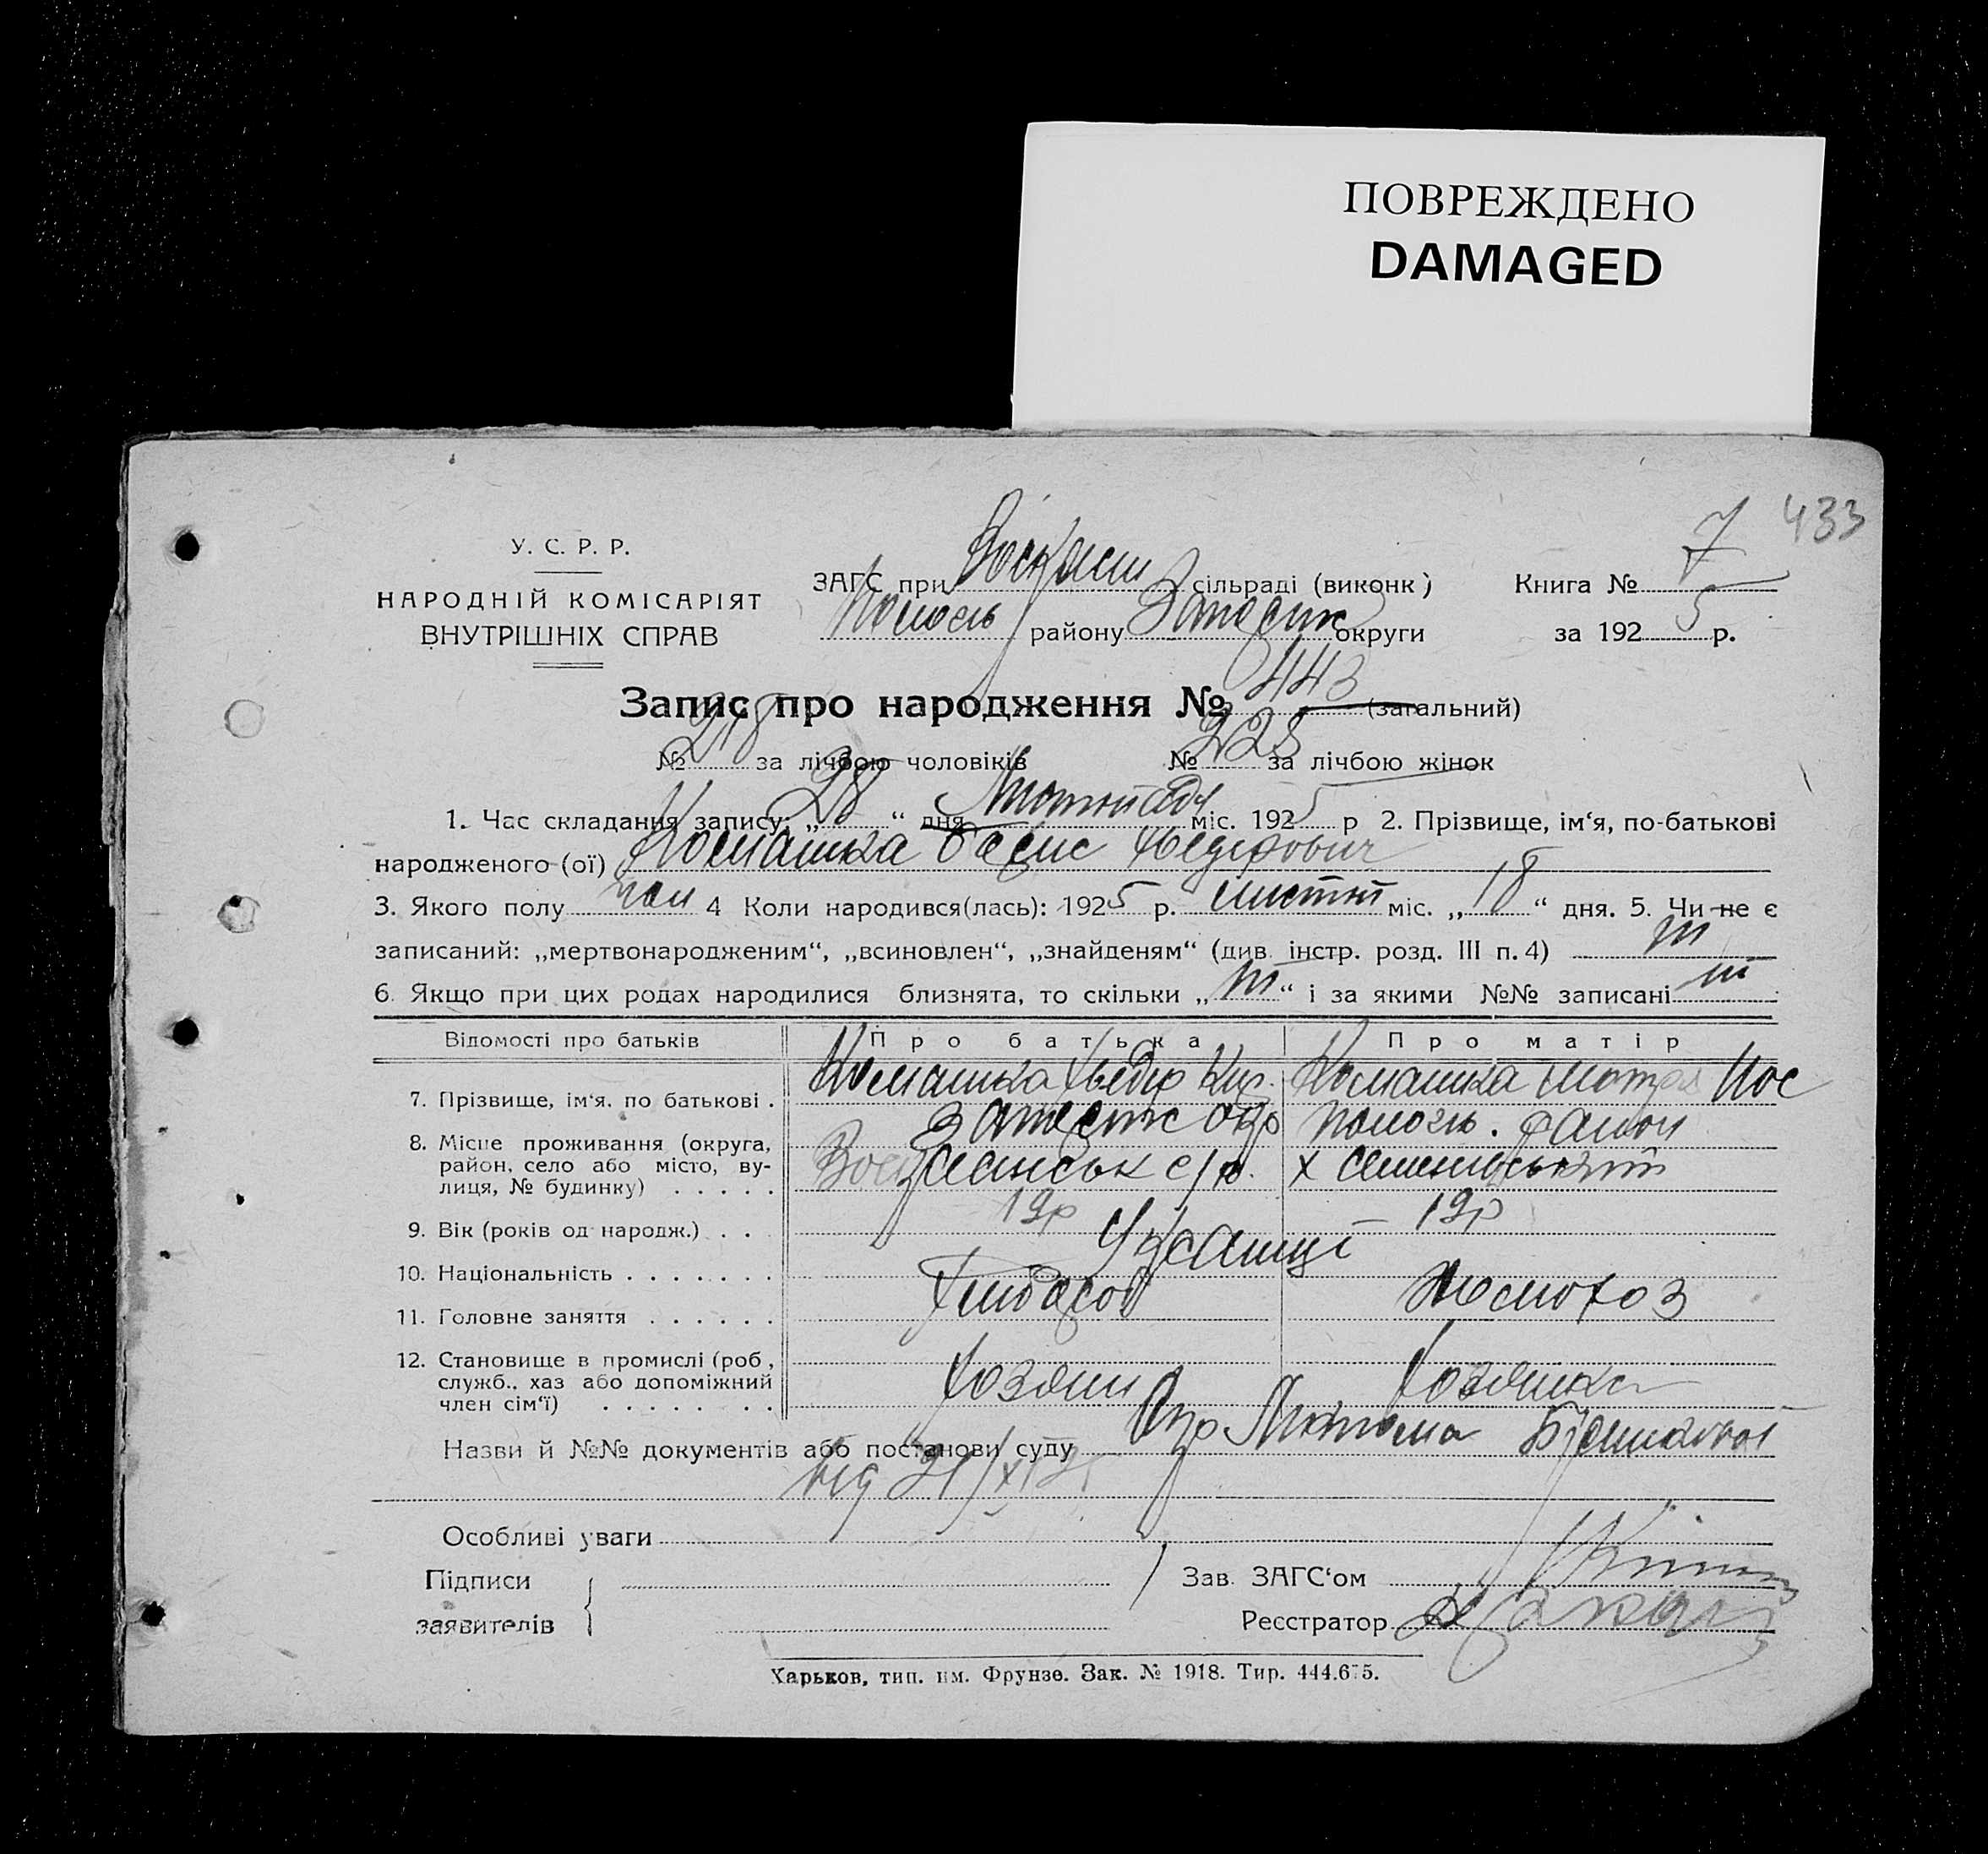 ПОВРЕЖДЕНО
DAMAGED
433
У. С. Р. Р.
НАРОДНІЙ КОМІСАРІЯТ
ВНУТРІШНІХ СПРАВ
ЗАГС при сільраді (виконк)
району округи
Книга № 7
за 1925 р.
Запис про народження № 443 (загальний)
№ 218 за лічбою чоловіків № 225 за лічбою жінок
1. Час складання запису: „28“ дня міс. 1925 р 2. Прізвище, ім‘я, по-батькові
народженого (ої) Комашка
3. Якого полу чол 4 Коли народився(лась): 1925 р. листоп міс. „18“ дня. 5. Чи не є
записаний: „мертвонародженим“, „всиновлен“, „знайденям“ (див. інстр. розд. III п. 4)
6. Якщо при цих родах народилися близнята, то скільки „ “ і за якими №№ записані
Відомості про батьків Про батька Про матір
7. Прізвище, ім‘я. по батькові . Комашка Хведір Кир. Комашка Мотря Йос
8. Місце проживання (округа, район, село або місто, вулиця, № будинку) . . . . . окр Пологів. район
с/р. х
9. Вік (років од народж.) . . 19р 19р
10. Національність . . . . . . . Українці
11. Головне заняття . . . . . . Хлібороб Домохоз
12. Становище в промислі (роб, служб., хаз або допоміжний член сім‘ї) . . . . . . . . Хозяин Хозяйка
Назви й №№ документів або постанови суду
від
Особливі уваги
Підписи заявителів
Зав. ЗАГС‘ом
Реєстратор
Харьков, тип. им. Фрунзе. Зак. № 1918. Тир. 444.675.